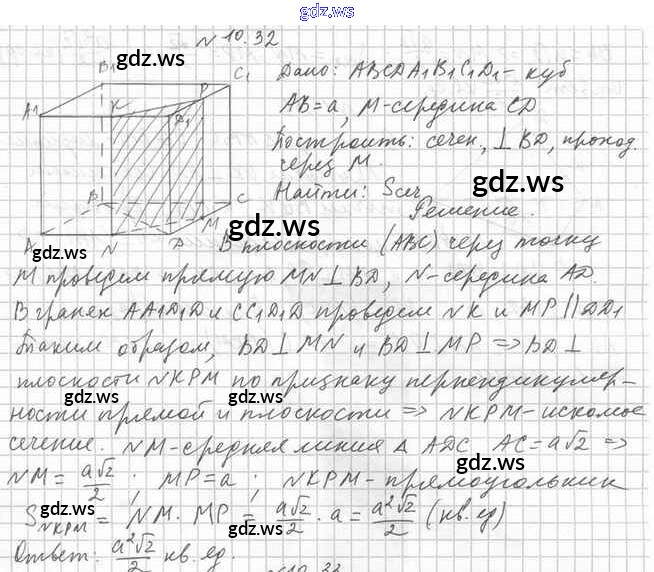 gdz.ws
№ 10.32
gdz.ws
B1 C1 Дано: ABCDA1B1C1D1 - куб
A1 K P D1 AB=a, M-середина CD
Построить: сечен, ⊥ BD, проход.
через M.
gdz.ws
B C Найти: Sсеч
Решение.
gdz.ws
A N D M В плоскости (ABC) через точку
gdz.ws
M проведем прямую MN ⊥ BD, N-середина AD.
В гранях AA1D1D и CC1D1D проведем NK и MP || DD1
Таким образом, BD ⊥ MN и BD ⊥ MP => BD ⊥
плоскости NKPM по признаку перпендикуляр-
gdz.ws gdz.ws
ности прямой и плоскости => NKPM - искомое
сечение. NM - средняя линия Δ ADC AC = a√2 =>
gdz.ws
NM = a√2/2 ; MP = a ; NKPM - прямоугольник
gdz.ws
S NKPM = NM · MP = a√2/2 · a = a²√2/2 (кв. ед)
gdz.ws
Ответ: a²√2/2 кв. ед.
gdz.ws
№ 10.33